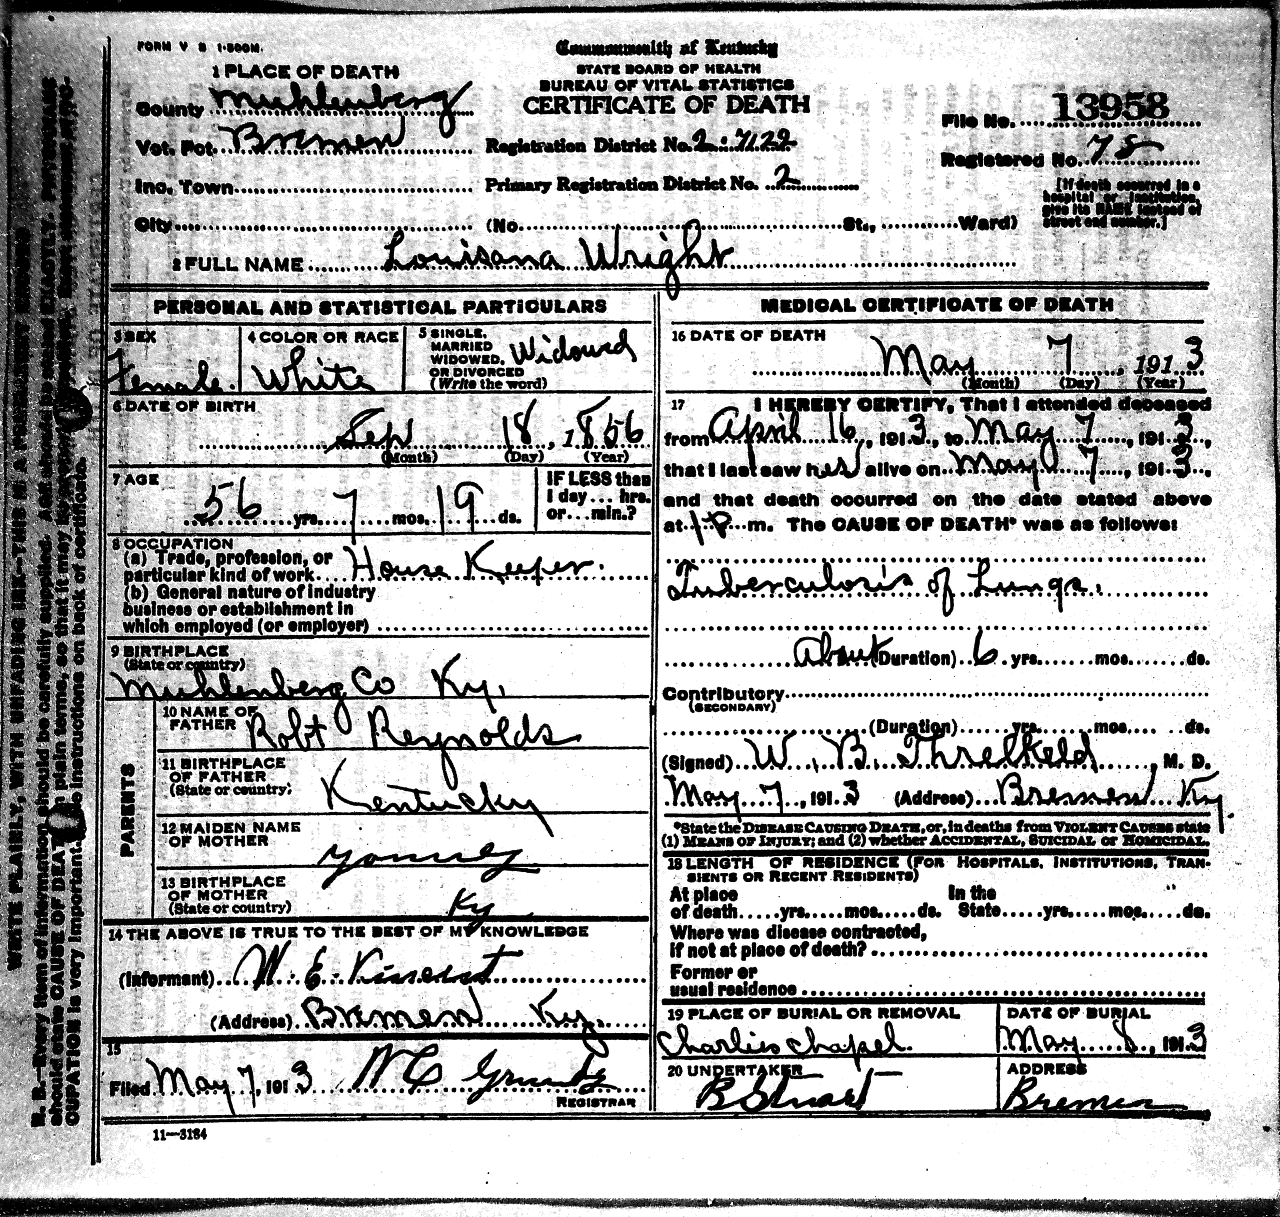 FORM V S 1-500M.
Commonwealth of Kentucky
STATE BOARD OF HEALTH
BUREAU OF VITAL STATISTICS
CERTIFICATE OF DEATH
1 PLACE OF DEATH
County Muhlenberg
Vot. Pct. Bremen
Inc. Town
City
Registration District No. 2-7122
Primary Registration District No. 2
(No. St., Ward)
File No. 13958
Registered No. 78
[If death occurred in a
hospital or institution,
give its NAME instead of
street and number.]
2 FULL NAME Louisana Wright
PERSONAL AND STATISTICAL PARTICULARS
3 SEX
Female.
4 COLOR OR RACE
White
5 SINGLE,
MARRIED
WIDOWED,
OR DIVORCED
(Write the word)
Widowed
6 DATE OF BIRTH
Sep 18, 1856
(Month) (Day) (Year)
7 AGE
56 yrs. 7 mos. 19 ds.
IF LESS than
1 day... hrs.
or... min.?
8 OCCUPATION
(a) Trade, profession, or
particular kind of work House Keeper.
(b) General nature of industry
business or establishment in
which employed (or employer)
9 BIRTHPLACE
(State or country)
Muhlenberg Co Ky.
PARENTS
10 NAME OF
FATHER
Robt Reynolds
11 BIRTHPLACE
OF FATHER
(State or country)
Kentucky
12 MAIDEN NAME
OF MOTHER
13 BIRTHPLACE
OF MOTHER
(State or country)
Ky
14 THE ABOVE IS TRUE TO THE BEST OF MY KNOWLEDGE
(Informant) W. E. Vincent
(Address) Bremen Ky.
15
Filed May 7, 1913 W C Grundy
REGISTRAR
11—3184
MEDICAL CERTIFICATE OF DEATH
16 DATE OF DEATH
May 7, 1913
(Month) (Day) (Year)
17 I HEREBY CERTIFY, That I attended deceased
from April 16, 1913, to May 7, 1913,
that I last saw her alive on May 7, 1913,
and that death occurred on the date stated above
at 1 P m. The CAUSE OF DEATH* was as follows:
Tuberculosis of Lungs.
About (Duration) 6 yrs. mos. ds.
Contributory
(SECONDARY)
(Duration) yrs. mos. ds.
(Signed) W. B. Threlkeld, M. D.
May 7, 1913 (Address) Bremen Ky.
*State the DISEASE CAUSING DEATH, or, in deaths from VIOLENT CAUSES state
(1) MEANS OF INJURY; and (2) whether ACCIDENTAL, SUICIDAL OR HOMICIDAL.
18 LENGTH OF RESIDENCE (FOR HOSPITALS, INSTITUTIONS, TRAN-
SIENTS OR RECENT RESIDENTS)
At place In the
of death yrs. mos. ds. State yrs. mos. ds.
Where was disease contracted,
if not at place of death?
Former or
usual residence
19 PLACE OF BURIAL OR REMOVAL
Charlies Chapel.
DATE OF BURIAL
May 8, 1913
20 UNDERTAKER
B Stuart
ADDRESS
Bremen